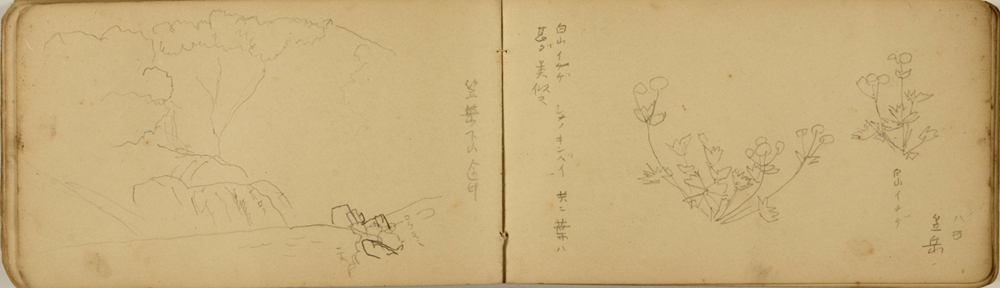 八日
笠岳
白山イチゲ
白山イチゲ シナノキンバイ 共ニ葉ハ
甚ダ美似タ
笠岳下山途中